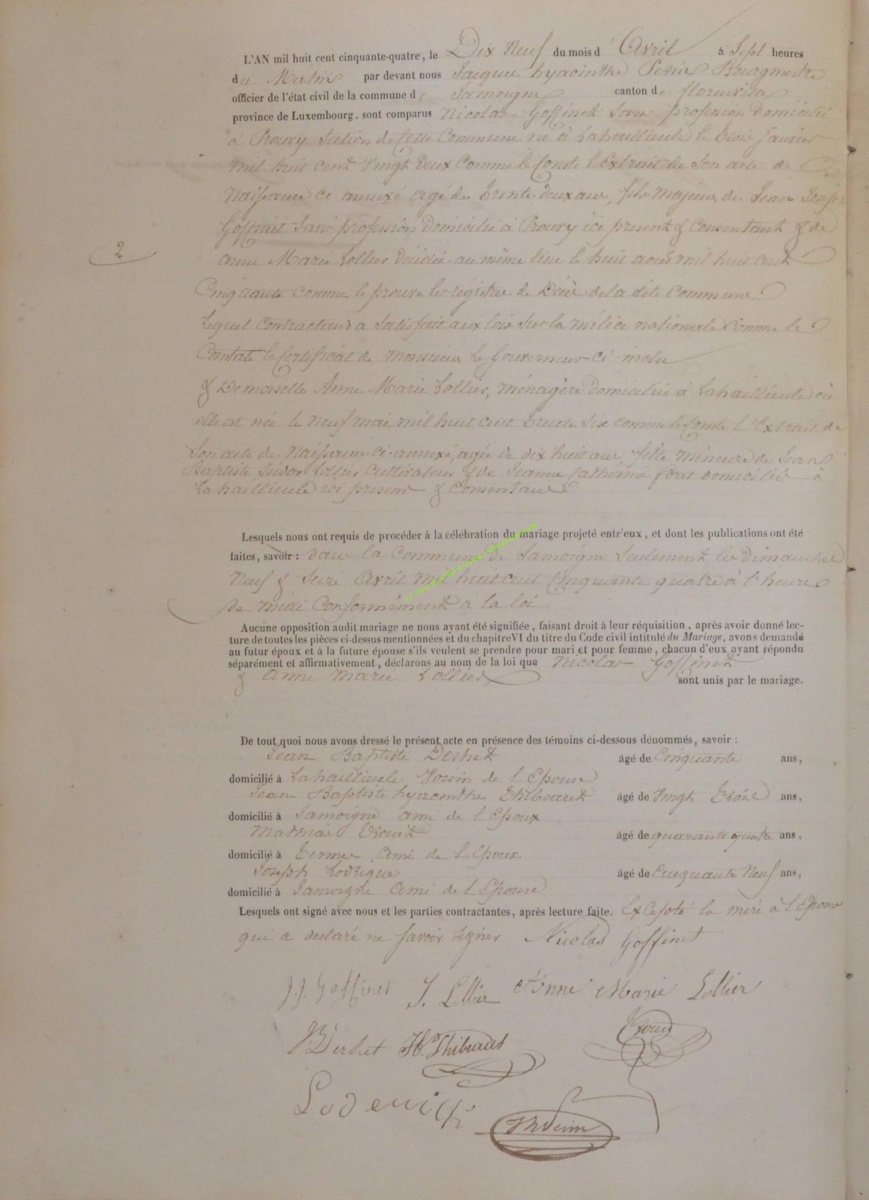 L'AN mil huit cent cinquante-quatre, le Dix Neuf du mois d' Avril à Sept heures
du Matin par devant nous Jacques hyacinthe Perin Bourgmestre
officier de l'état civil de la commune d Jamoigne canton d florenville
province de Luxembourg, sont comparus Nicolas Goffinet Sans profession Domicilié
à Prouvy Section de cette Commune né à Lahaillieule le trois Janvier
mil huit cent Vingt Deux Comme le Conste l'Extrait de Son acte de
Naissance ci annexé agé de Trente deux ans, fils majeur de Jean Joseph
Goffinet Sans profession Domicilié à Prouvy ici présent & Consentant & de
anne Marie Lollier décédée au même lieu le huit aout mil huit cent
Cinquante comme le prouve les registre de Décè de la dite Commune
lequel Contractant a Satisfait aux lois Sur la milice nationale Comme le
Constate le Certificat de Monsieur le Gouverneur ci inclu
& Demoiselle Anne Marie Lollier, Ménagère domiciliée à Lahaillieule où
elle est née le Neuf mai mil huit cent trente Six comme le Conste L'Extrait de
Son acte de Naissance ci-annexé, agée de dix huit ans fille Mineure de Jean
Baptiste Lollier Cultivateur & de Jeanne Catherine domicilié à
Lahaillieule ici présent & Consentant
2
Lesquels nous ont requis de procéder à la célébration du mariage projeté entr'eux, et dont les publications ont été
faites, savoir : dans la Commune de Jamoigne Seulement les Dimanche
Neuf & Seize Avril mil huit cent Cinquante quatre à l'heure
de midi Conformément à la loi
Aucune opposition audit mariage ne nous ayant été signifiée, faisant droit à leur réquisition, après avoir donné lec-
ture de toutes les pièces ci-dessus mentionnées et du chapitre VI du titre du Code civil intitulé du Mariage, avons demandé
au futur époux et à la future épouse s'ils veulent se prendre pour mari et pour femme, chacun d'eux ayant répondu
séparément et affirmativement, déclarons au nom de la loi que Nicolas Goffinet
& Anne Marie Lollier sont unis par le mariage.
De tout quoi nous avons dressé le présent acte en présence des témoins ci-dessous dénommés, savoir :
Jean Baptiste Dechet âgé de Cinquante ans,
domicilié à Lahaillieule Voisin de l'Epouse
Jean Baptiste hyacinthe Thibeaut âgé de Vingt Troix ans,
domicilié à Jamoigne ami de l'Epoux
Mathias âgé de quarante quatre ans,
domicilié à Termes Ami de l'Epoux
Joseph Lodevique âgé de Cinquante Neuf ans,
domicilié à Jamoigne Ami de l'Epouse
Lesquels ont signé avec nous et les parties contractantes, après lecture faite. Excepté la mère à l'Epouse
qui a déclaré ne Savoir Signer Nicolas Goffinet
J.J. Goffinet J. Lollier Anne Marie Lollier
Dechet Thibeaut
Perin